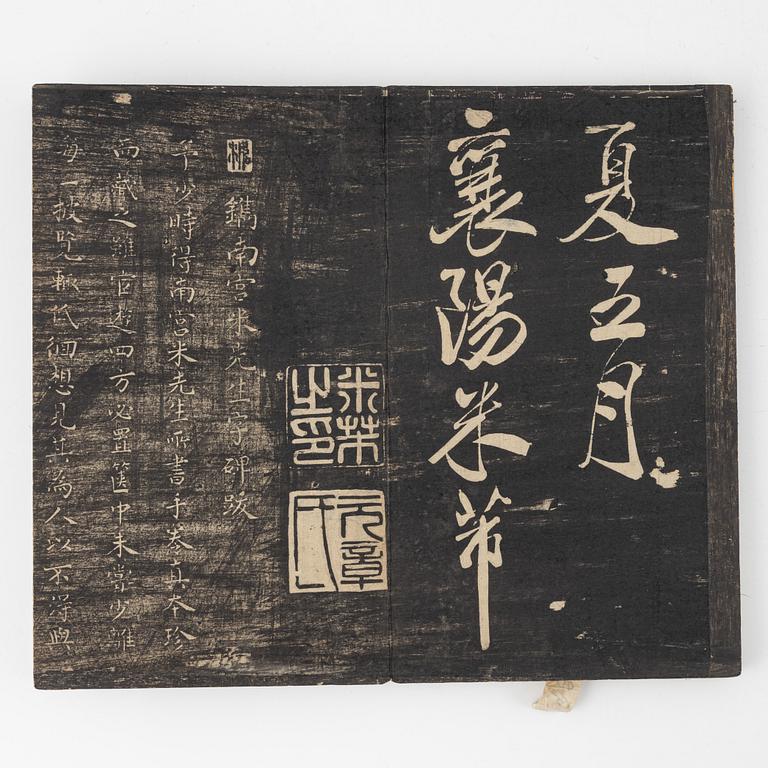 夏五月
襄陽米芾
米芾之印
元章氏
鐫南宮米先生字碑跋
予少時得南宮米先生所書手卷真本珍
而藏之雖宦遊四方必置篋中未嘗少離
每一披覽輒低徊想見其為人以不得與